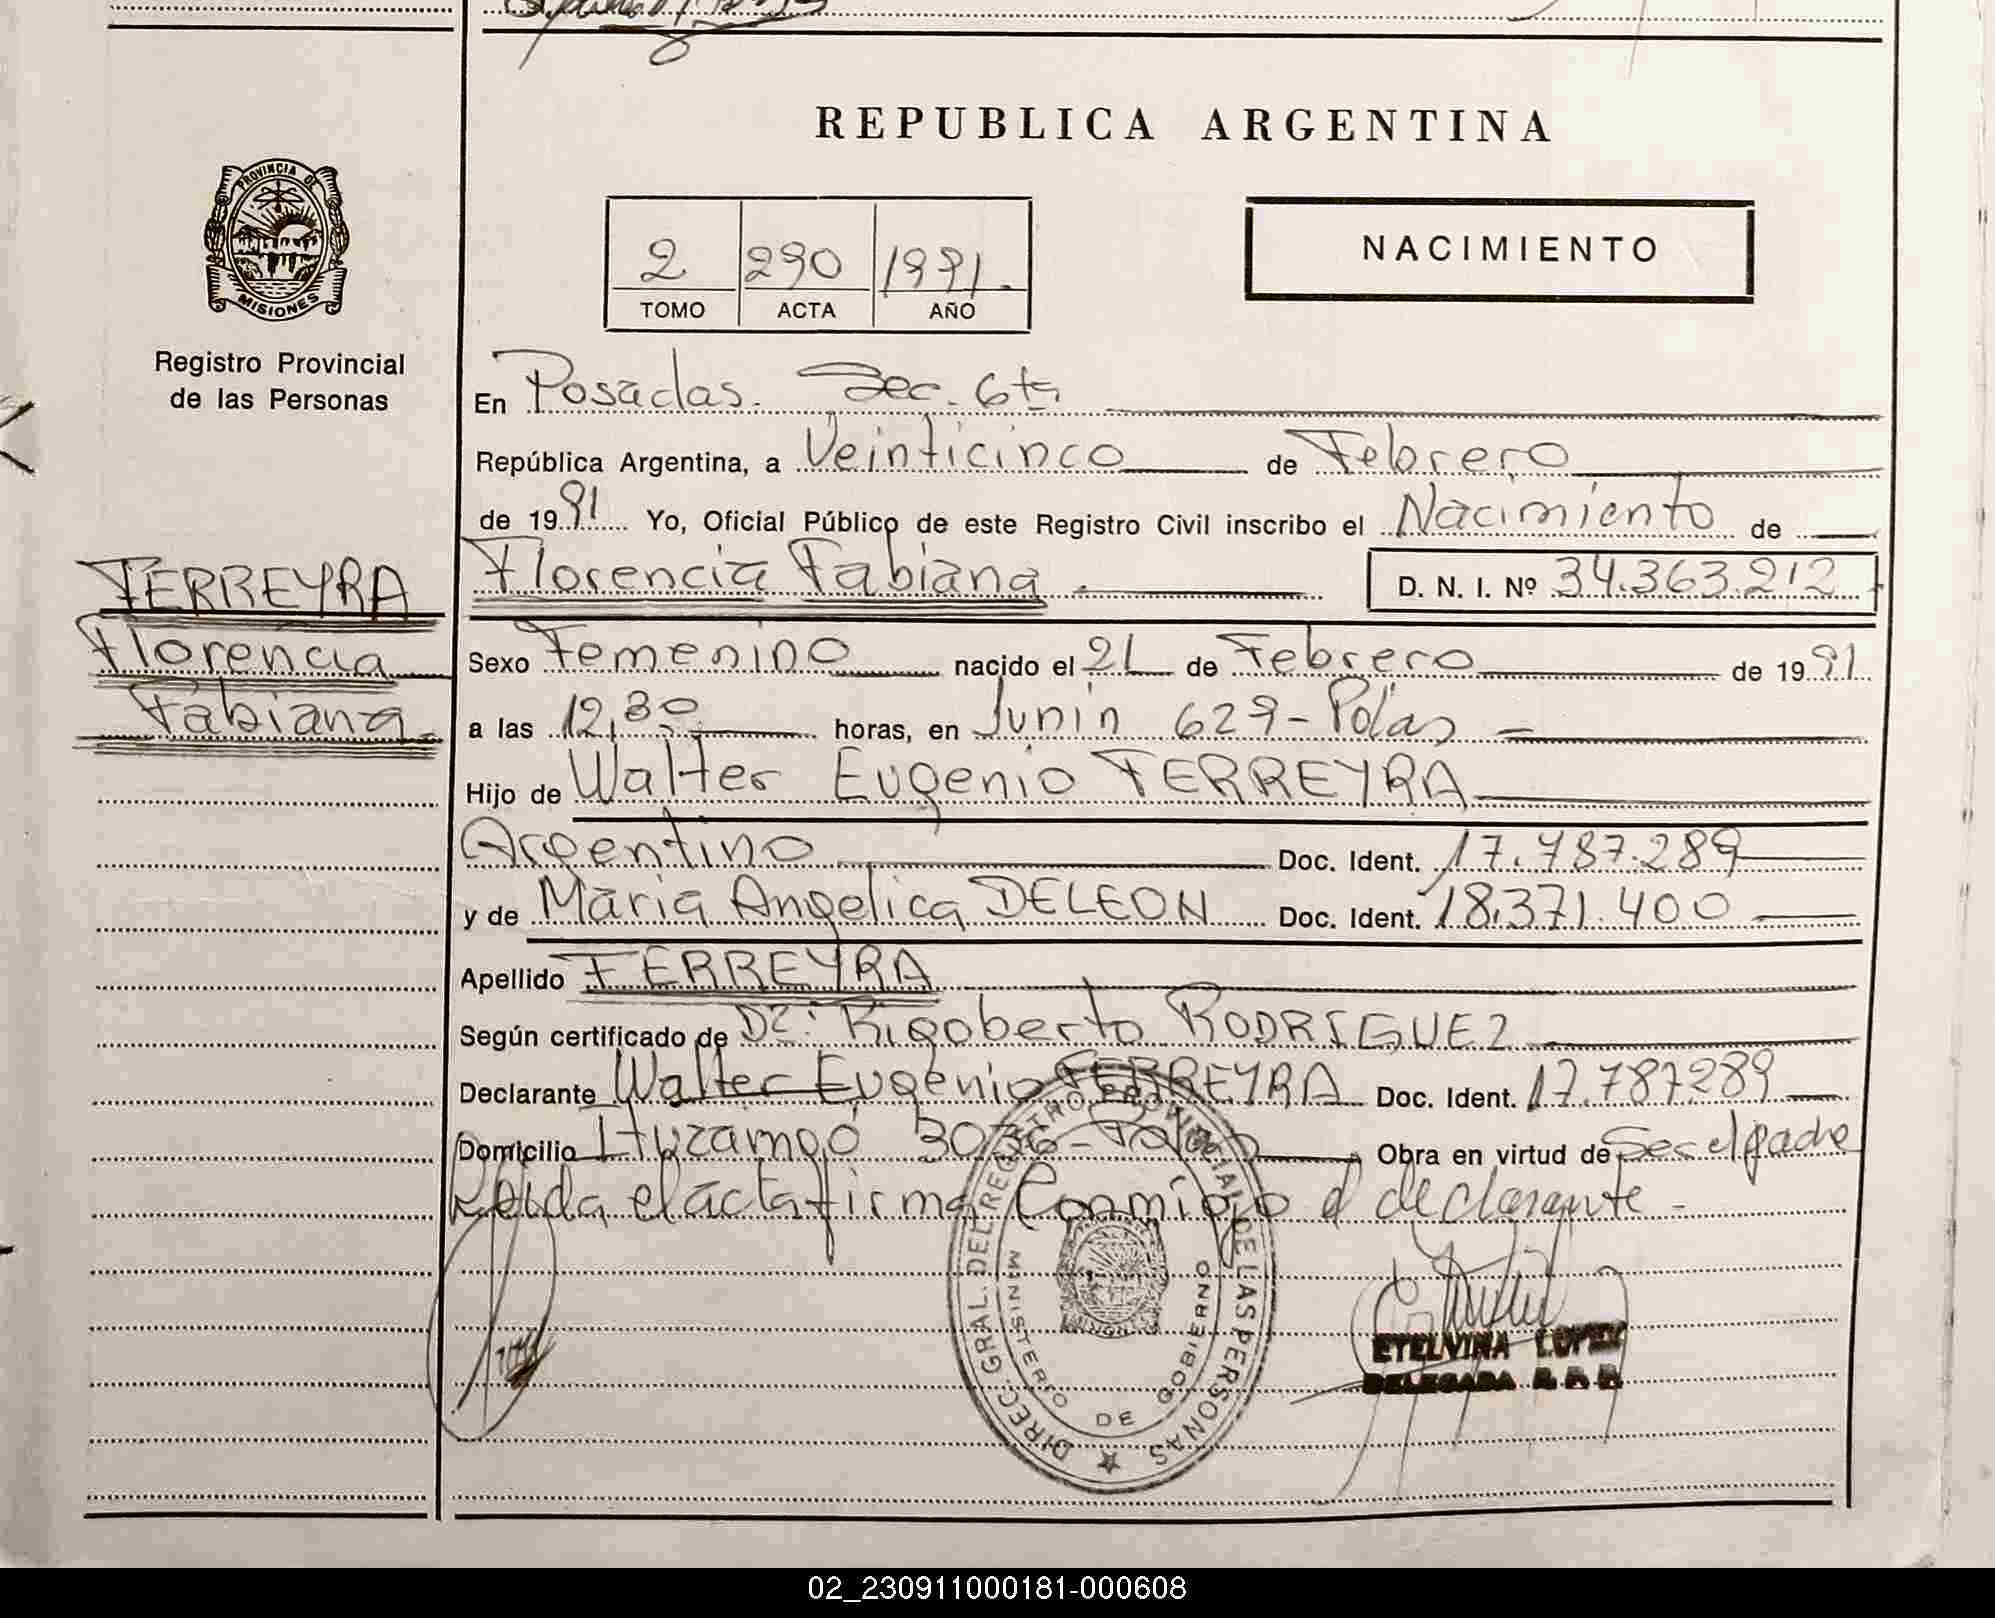 REPUBLICA ARGENTINA
PROVINCIA DE
MISIONES
Registro Provincial
de las Personas
2 290 1991.
TOMO ACTA AÑO
NACIMIENTO
En Posadas. Sec. 6ta
República Argentina, a Veinticinco de Febrero
de 1991 Yo, Oficial Público de este Registro Civil inscribo el Nacimiento de
FERREYRA
Florencia
Fabiana.
Florencia Fabiana. D. N. I. Nº 34.363.212
Sexo Femenino nacido el 21 de Febrero de 1991
a las 12,30 horas, en Junin 629 - Pdas
Hijo de Walter Eugenio FERREYRA
Argentino Doc. Ident. 17.787.289
y de Maria Angelica DELEON Doc. Ident. 18.371.400
Apellido FERREYRA
Según certificado de Dr: Rigoberto RODRIGUEZ
Declarante Walter Eugenio FERREYRA Doc. Ident. 17.787289
Domicilio Ituzaingó 3036 - Pdas Obra en virtud de Ser el padre
Leida el acta firma Conmigo el declarante -
DIREC. GRAL. DEL REGISTRO PROVINCIAL DE LAS PERSONAS
MINISTERIO DE GOBIERNO
ETELVINA LOPEZ
DELEGADA
02_230911000181-000608